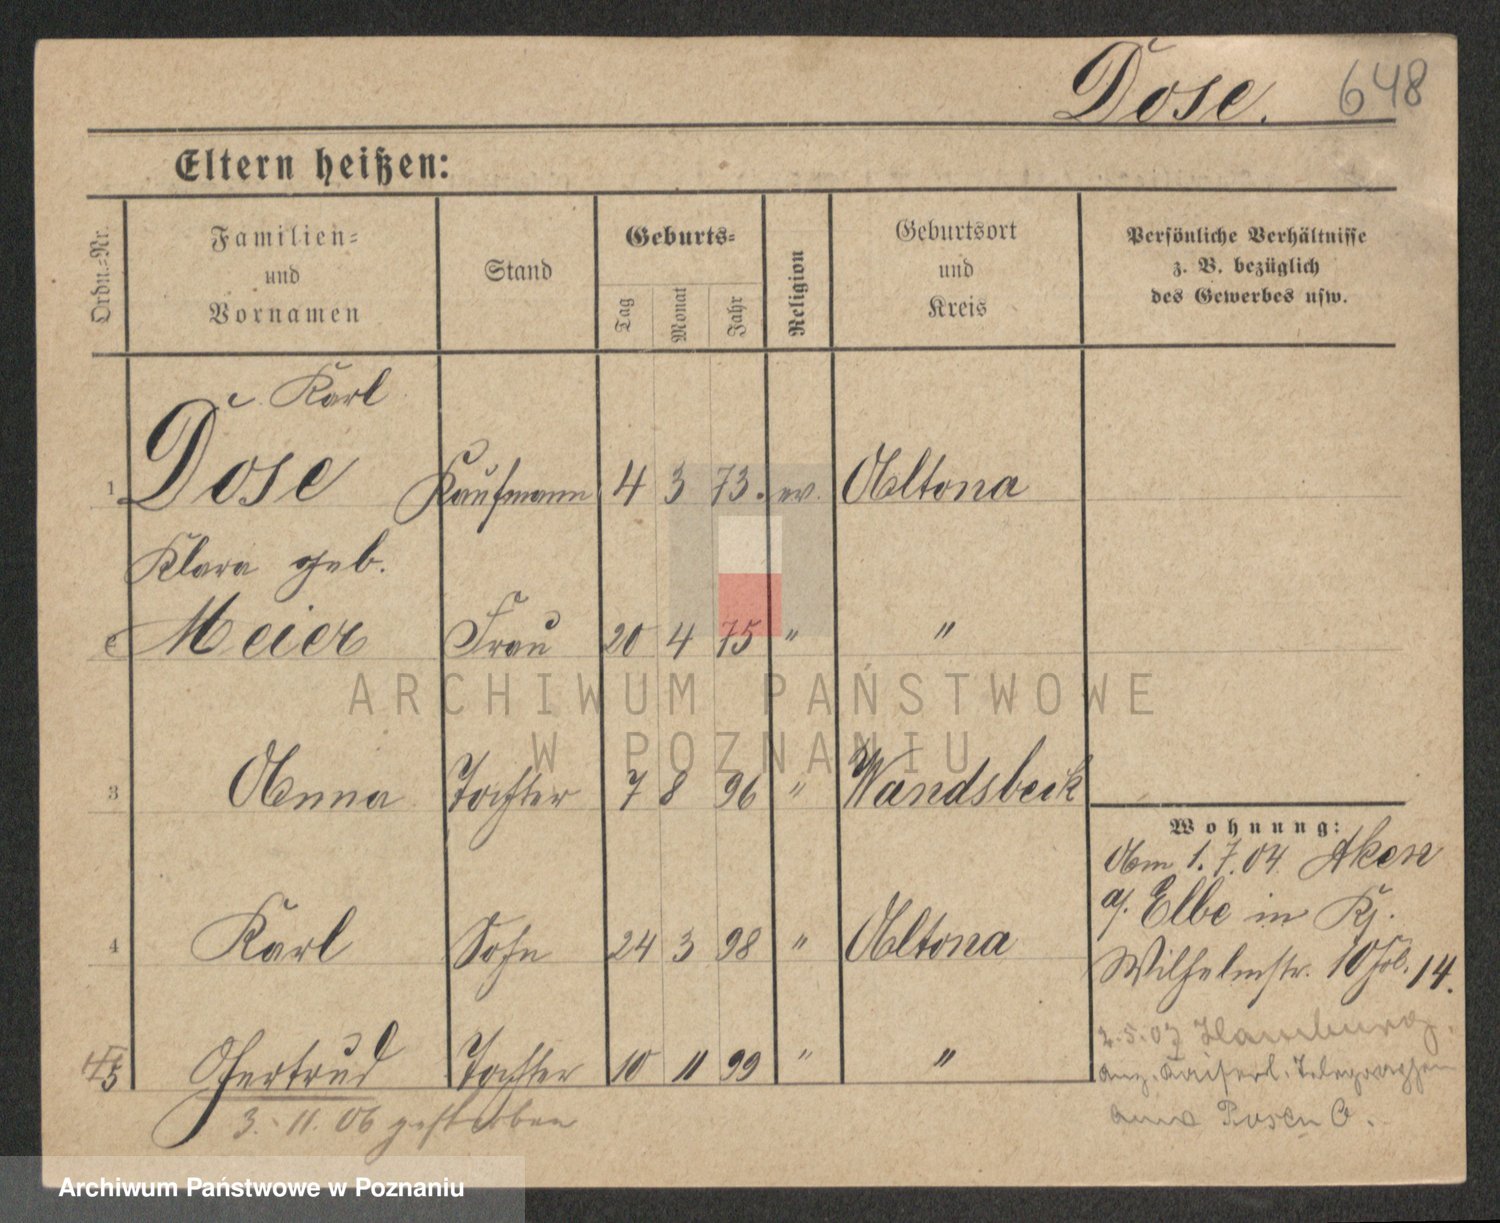 Dose. 648
Eltern heißen:
Ordn.=Nr.
Familien=
und
Vornamen
Stand
Geburts=
Tag
Monat
Jahr
Religion
Geburtsort
und
Kreis
Persönliche Verhältnisse
z. B. bezüglich
des Gewerbes usw.
Karl
1 Dose Kaufmann 4 3 73. ev. Altona
Klara geb.
2 Meier Frau 20 4 75 " "
3 Anna Tochter 7 8 96 " Wandsbeck
4 Karl Sohn 24 3 98 " Altona
5 Gertrud Tochter 10 11 99 " "
3.-11.06 gestorben
Wohnung:
Am 1.7.04 Aken
a/. Elbe in Kj.
Wilhelmstr. 10 14.
2.5.07 Hamburg.
Anz. Kaiserl. Telegraphen
amt Posen O.
ARCHIWUM PAŃSTWOWE
W POZNANIU
Archiwum Państwowe w Poznaniu